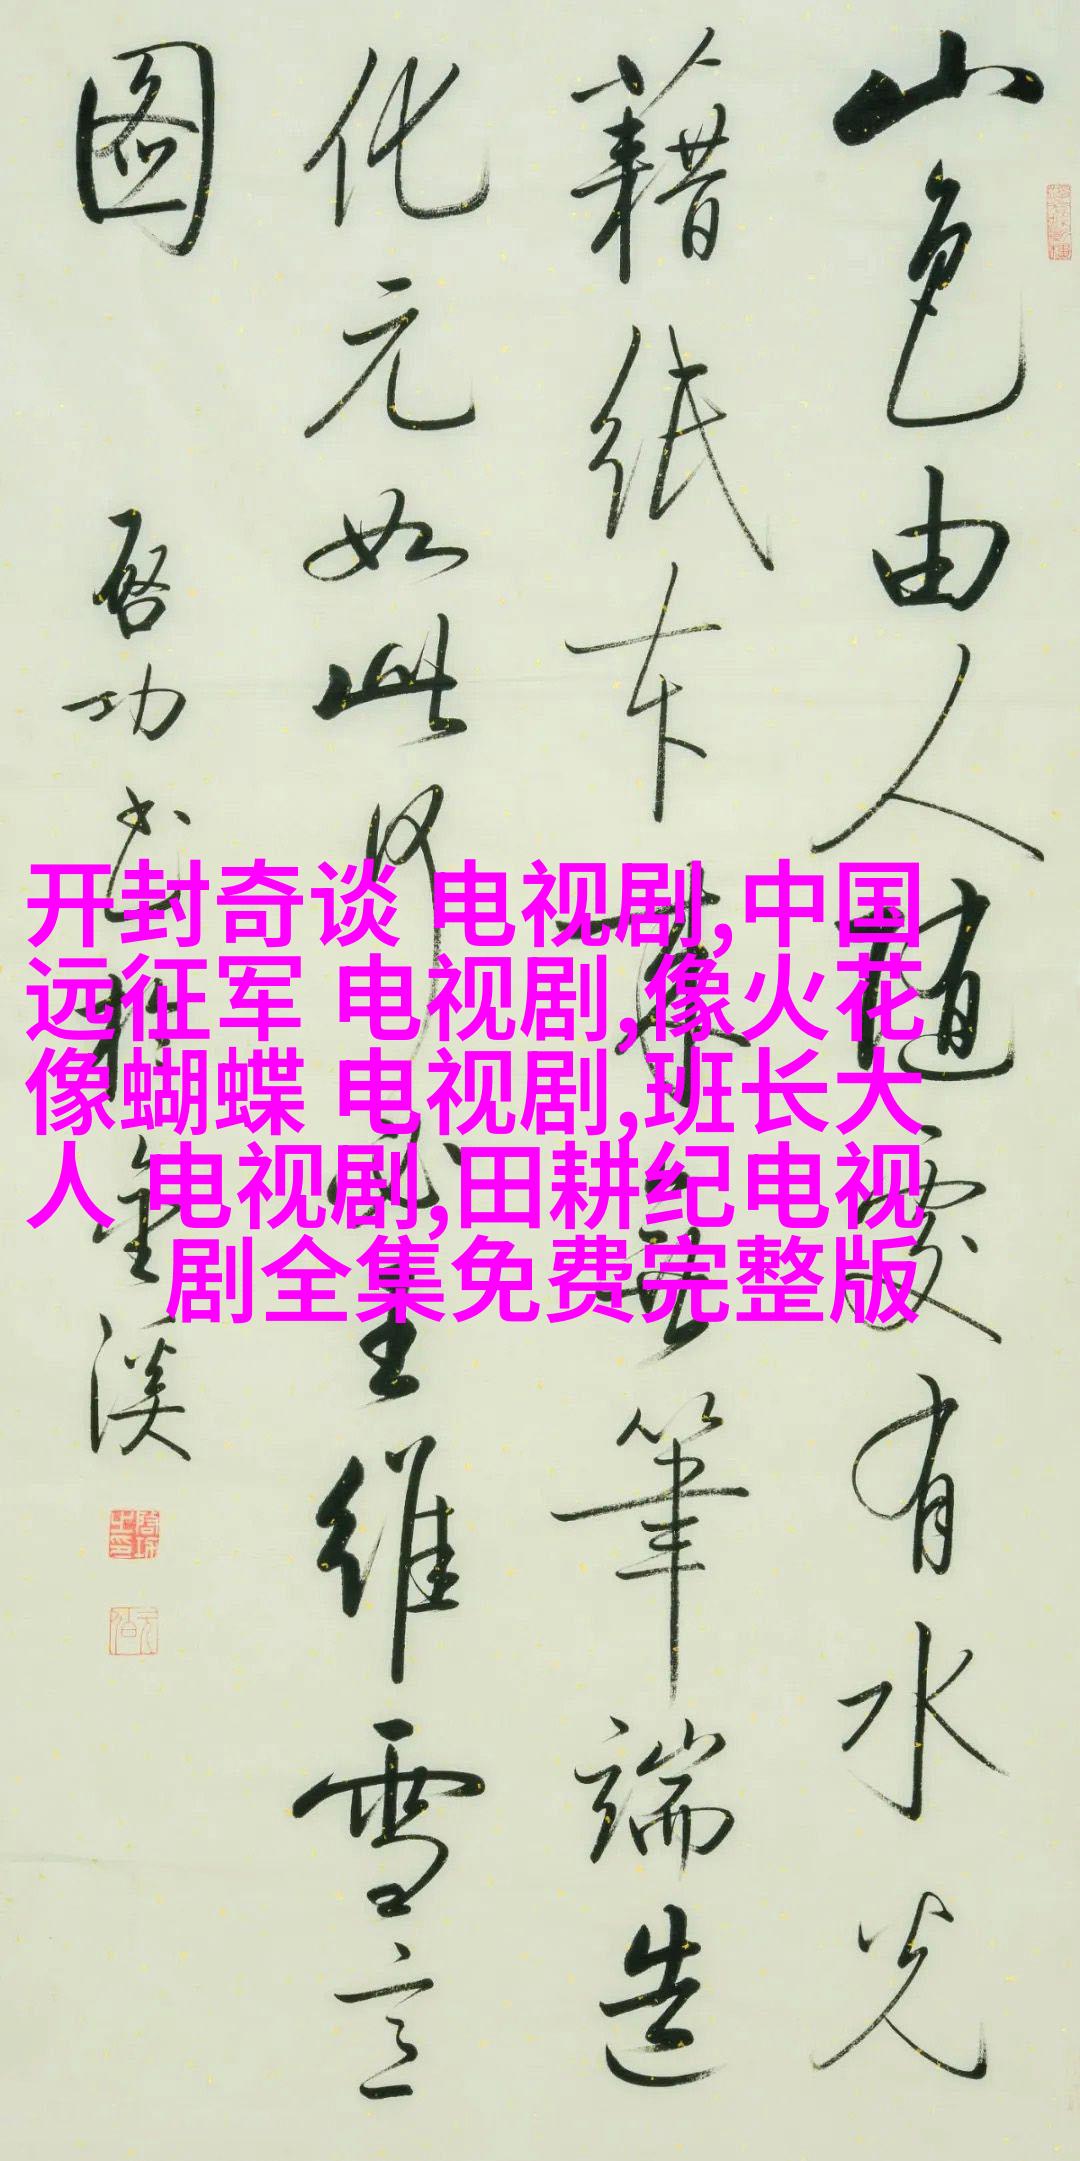 山色由人随處有水光
藉纸本無筆端造
化元如此何王維雪
图
启功
开封奇谈 电视剧,中国
远征军 电视剧,像火花
像蝴蝶 电视剧,班长大
人 电视剧,田耕纪电视
剧全集免费完整版